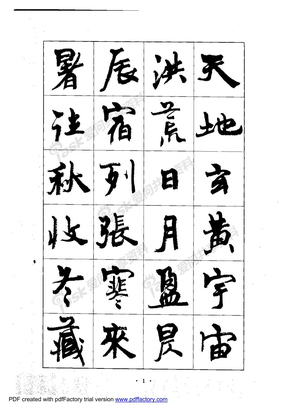 天地玄黃宇宙
洪荒日月盈昃
辰宿列張寒來
暑往秋收冬藏
· 1 ·
PDF created with pdfFactory trial version www.pdffactory.com